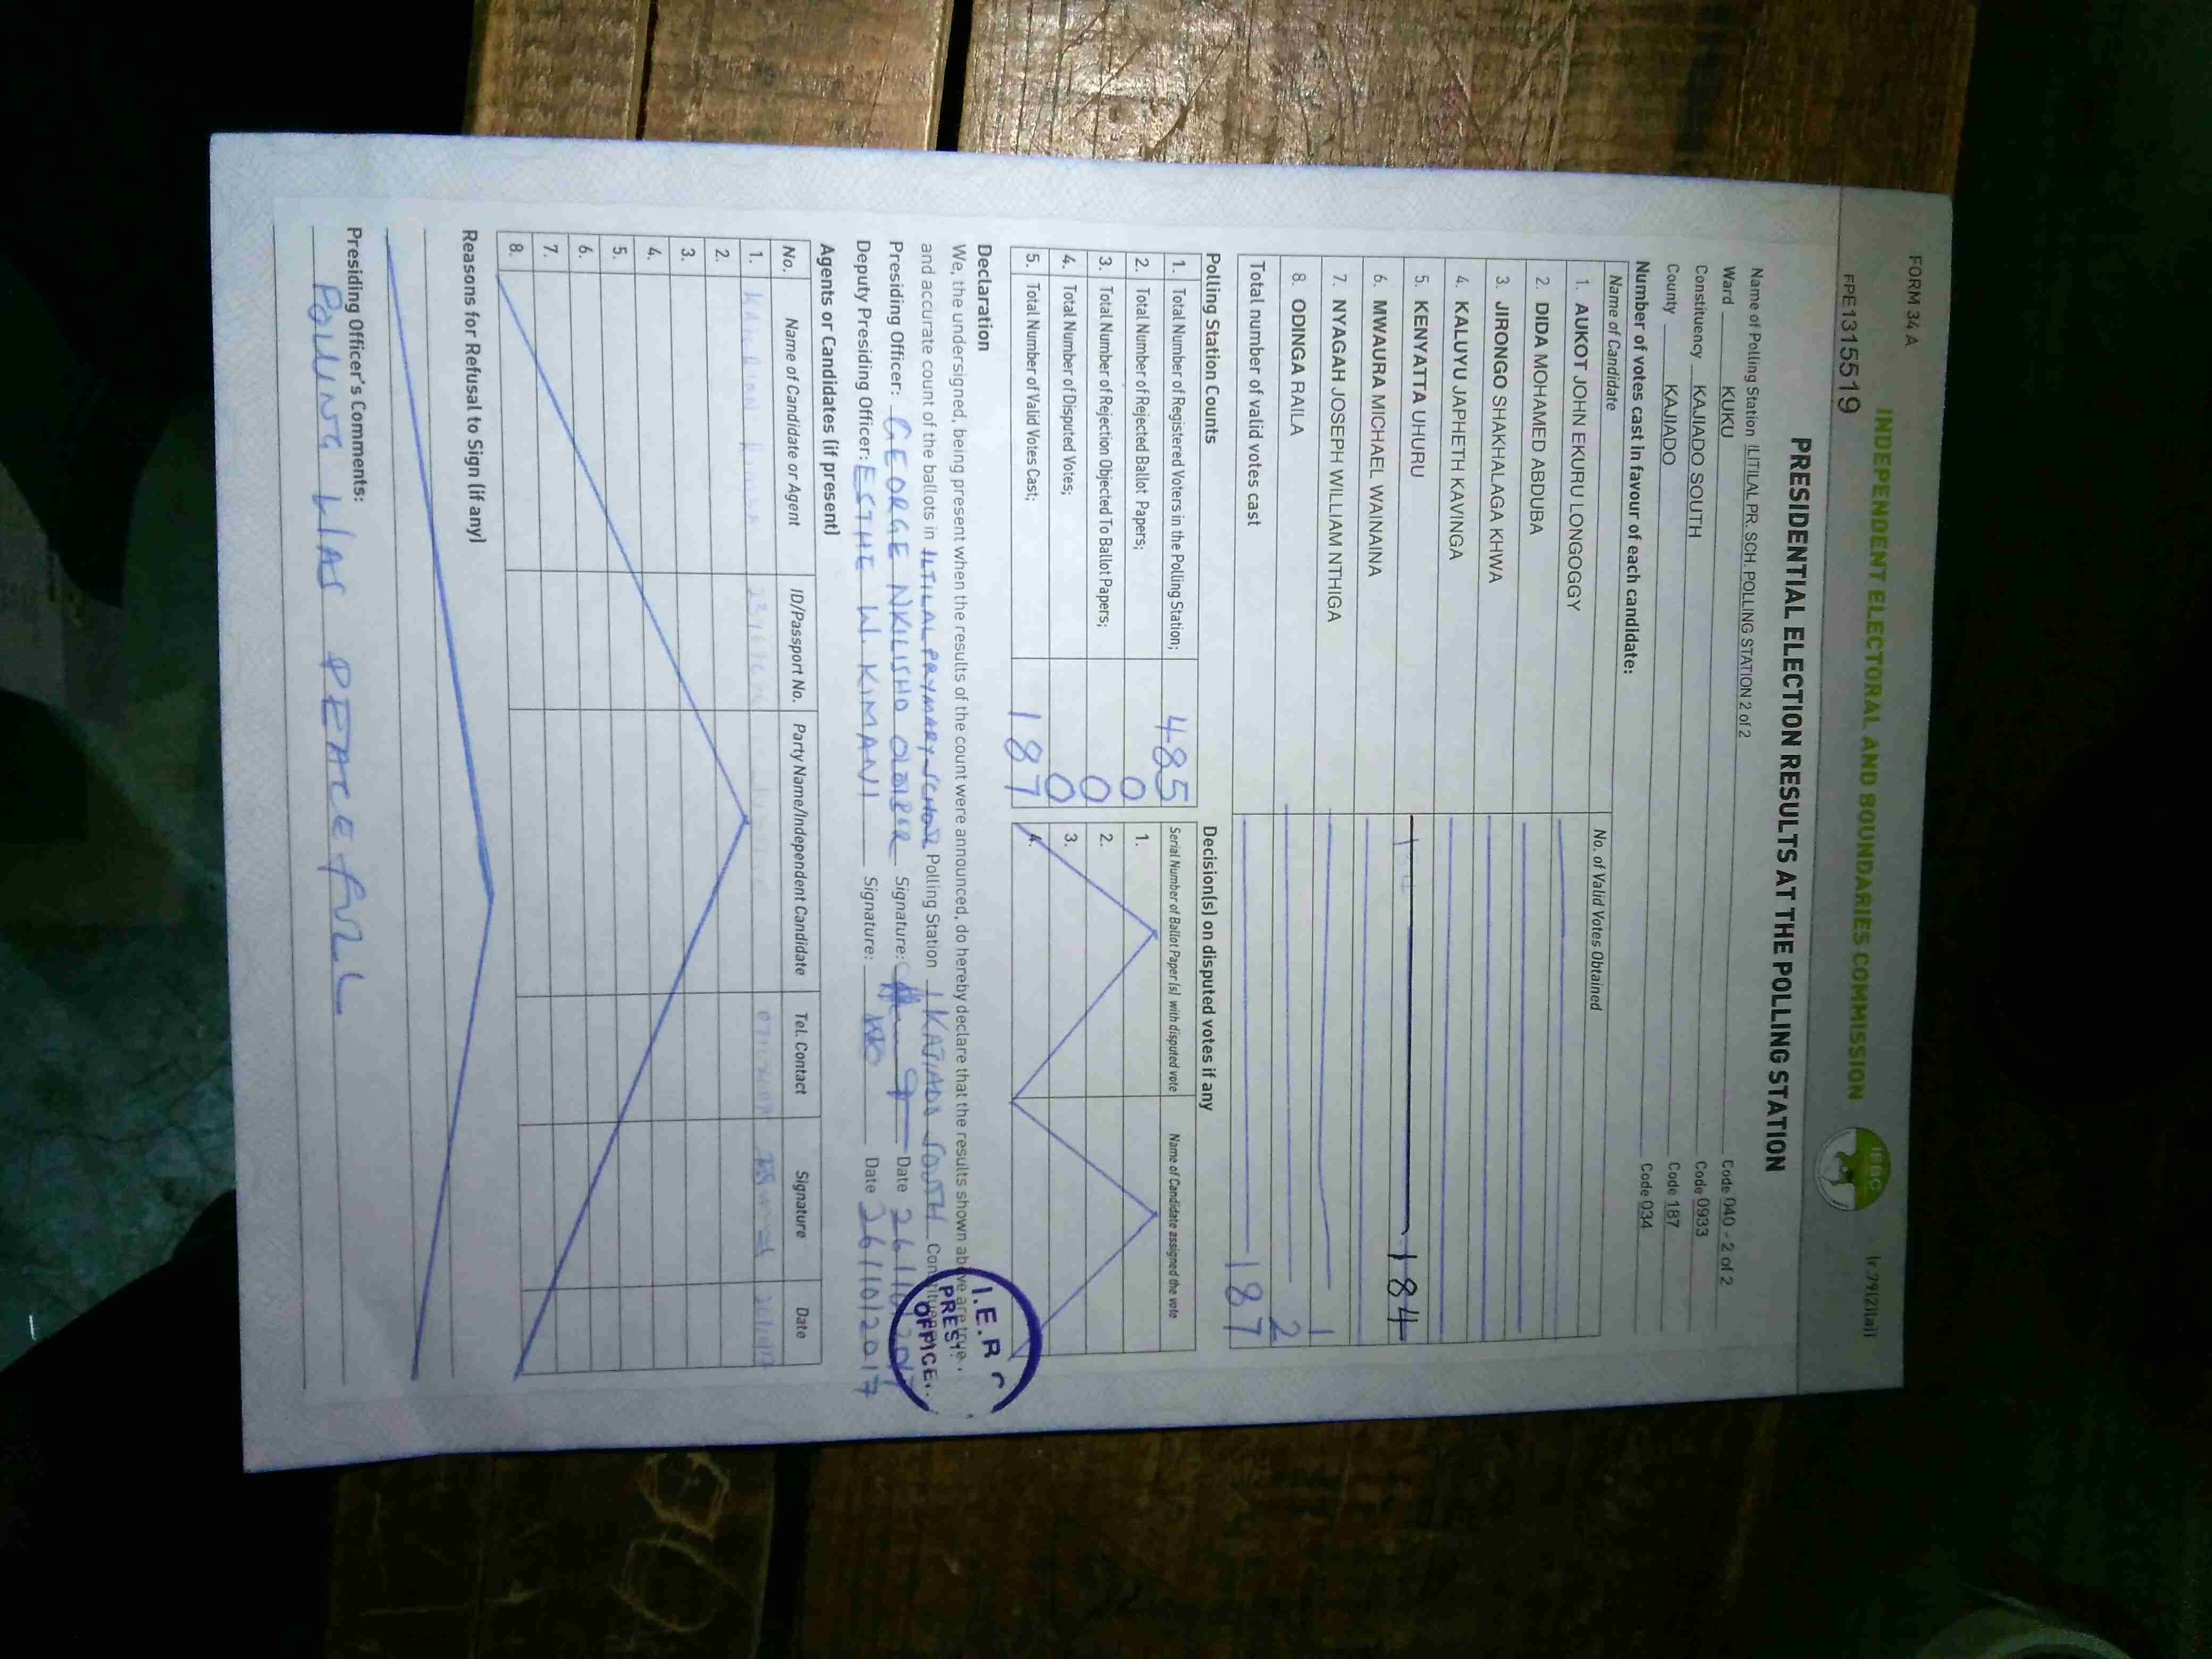 FORM 34 A
INDEPENDENT ELECTORAL AND BOUNDARIES COMMISSION
IEBC
(r.79(2)(a))
FPE1315519
PRESIDENTIAL ELECTION RESULTS AT THE POLLING STATION
Name of Polling Station ILITILAL PR. SCH. POLLING STATION 2 of 2 Code 040 - 2 of 2
Ward KUKU Code 0933
Constituency KAJIADO SOUTH Code 187
County KAJIADO Code 034
Number of votes cast in favour of each candidate:
Name of Candidate No. of Valid Votes Obtained
1. AUKOT JOHN EKURU LONGOGGY
2. DIDA MOHAMED ABDUBA
3. JIRONGO SHAKHALAGA KHWA
4. KALUYU JAPHETH KAVINGA
5. KENYATTA UHURU 184
6. MWAURA MICHAEL WAINAINA
7. NYAGAH JOSEPH WILLIAM NTHIGA 1
8. ODINGA RAILA 2
Total number of valid votes cast 187
Polling Station Counts
1. Total Number of Registered Voters in the Polling Station; 485
2. Total Number of Rejected Ballot Papers; 0
3. Total Number of Rejection Objected To Ballot Papers; 0
4. Total Number of Disputed Votes; 0
5. Total Number of Valid Votes Cast; 187
Decision(s) on disputed votes if any
Serial Number of Ballot Paper(s) with disputed vote Name of Candidate assigned the vote
1.
2.
3.
4.
Declaration
We, the undersigned, being present when the results of the count were announced, do hereby declare that the results shown above are true
and accurate count of the ballots in Polling Station KAJIADO SOUTH Constituency.
Presiding Officer: GEORGE NKILISHO Signature: Date 26/10/2017
Deputy Presiding Officer: ESTHE W. KIMANI Signature: Date 26/10/2017
PRES.
Agents or Candidates (if present)
No. Name of Candidate or Agent ID/Passport No. Party Name/Independent Candidate Tel. Contact Signature Date
1.
2.
3.
4.
5.
6.
7.
8.
Reasons for Refusal to Sign (if any)
Presiding Officer's Comments:
POLLING WAS PEACEFULL